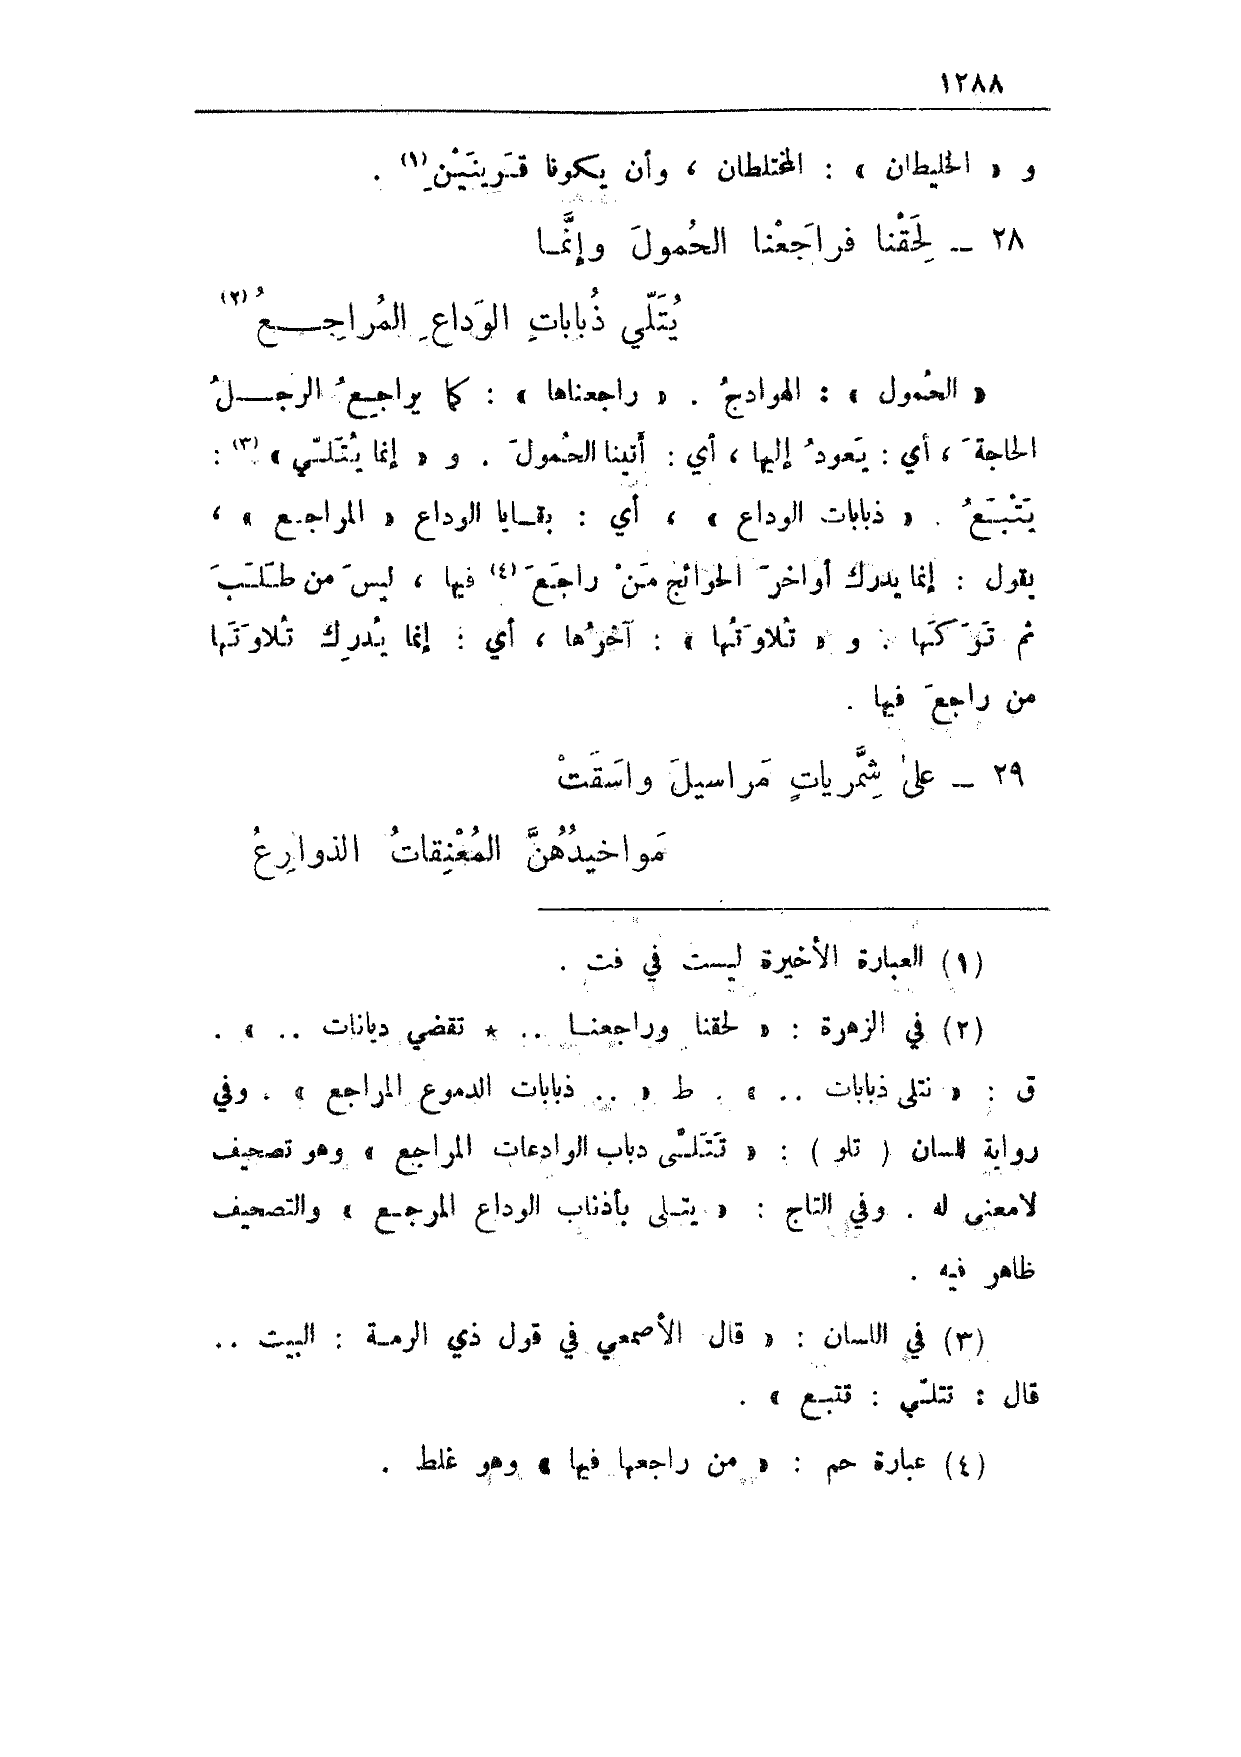 ١٢٨٨
و « الخليطان » : المختلطان ، وأن يكونا قَرينَيْنِ(١) .
٢٨ ــ لَحِقْنا فراجَعْنا الحُمولَ وإنَّمـا
يُتَلّي ذُباباتِ الوَداعِ المُراجِــعُ(٢)
« الحُمول » : الهوادجُ . « راجعناها » : كما يراجِعُ الرجــلُ
الحاجةَ ، أي : يَعودُ إليها ، أي : أتينا الحُمولَ . و « إنما يُتَلّي »(٣) :
يَتْبَعُ . « ذبابات الوداع » ، أي : بقـايا الوداع « المراجع » ،
يقول : إنما يدرك أواخرَ الحوائج مَنْ راجَعَ(٤) فيها ، ليسَ من طلَبَ
ثم تَرَكَها . و « تُلاوَتُها » : آخرُها ، أي : إنما يُدرِك تُلاوَتَها
من راجعَ فيها .
٢٩ ــ على شِمَّرياتٍ مَراسيلَ واسَقَتْ
مَواخيدُهُنَّ المُعْنِقاتُ الذوارِعُ
(١) العبارة الأخيرة ليست في فت .
(٢) في الزهرة : « لحقنا وراجعنـا .. * تقضي ديانات .. » .
ق : « نتلى ذبابات .. » . ط « .. ذبابات الدموع المراجع » . وفي
رواية للسان ( تلو ) : « تَتَلَّى دباب الوادعات المراجع » وهو تصحيف
لامعنى له . وفي التاج : « يتـلى بأذناب الوداع المرجـع » والتصحيف
ظاهر فيه .
(٣) في اللسان : « قال الأصمعي في قول ذي الرمـة : البيت ..
قال : تتلّي : تتبـع » .
(٤) عبارة حم : « من راجعها فيها » وهو غلط .